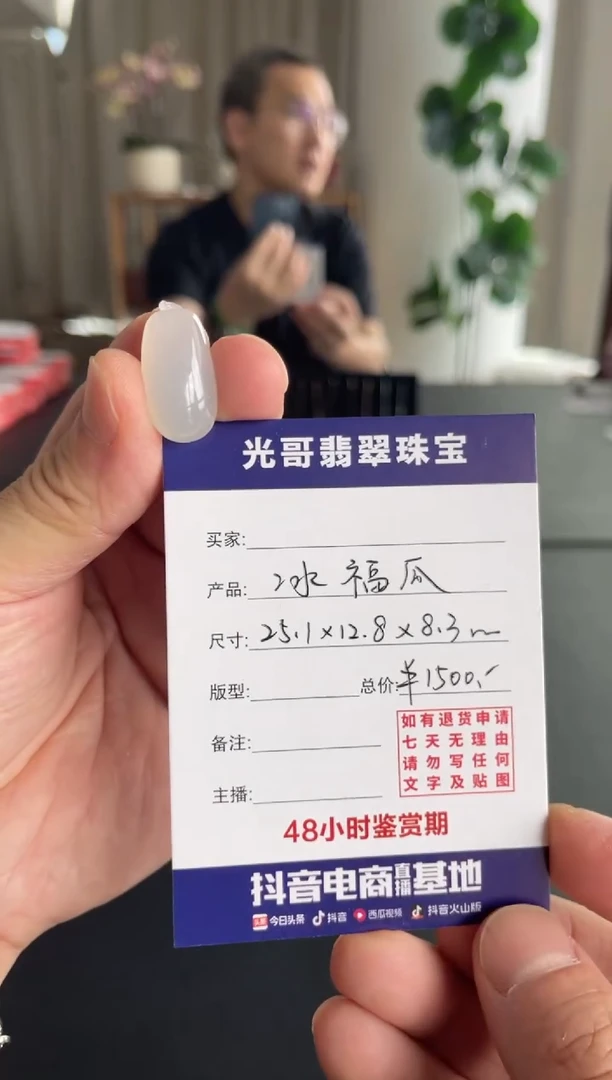 光哥翡翠珠宝
买家:
产品: 冰福瓜
尺寸: 25.1×12.8×8.3m
版型: 总价:¥1500.-
如有退货申请
七天无理由
请勿写任何
文字及贴图
备注:
主播:
48小时鉴赏期
抖音电商直播基地
头条 今日头条 抖音 西瓜视频 抖音火山版